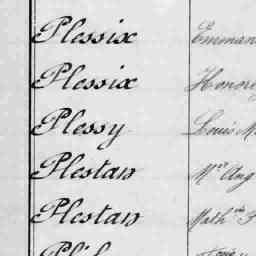 Plessix Emman
Plessix Honoré
Plessy Louis M
Plestan Mie Ang
Plestan Mathde F